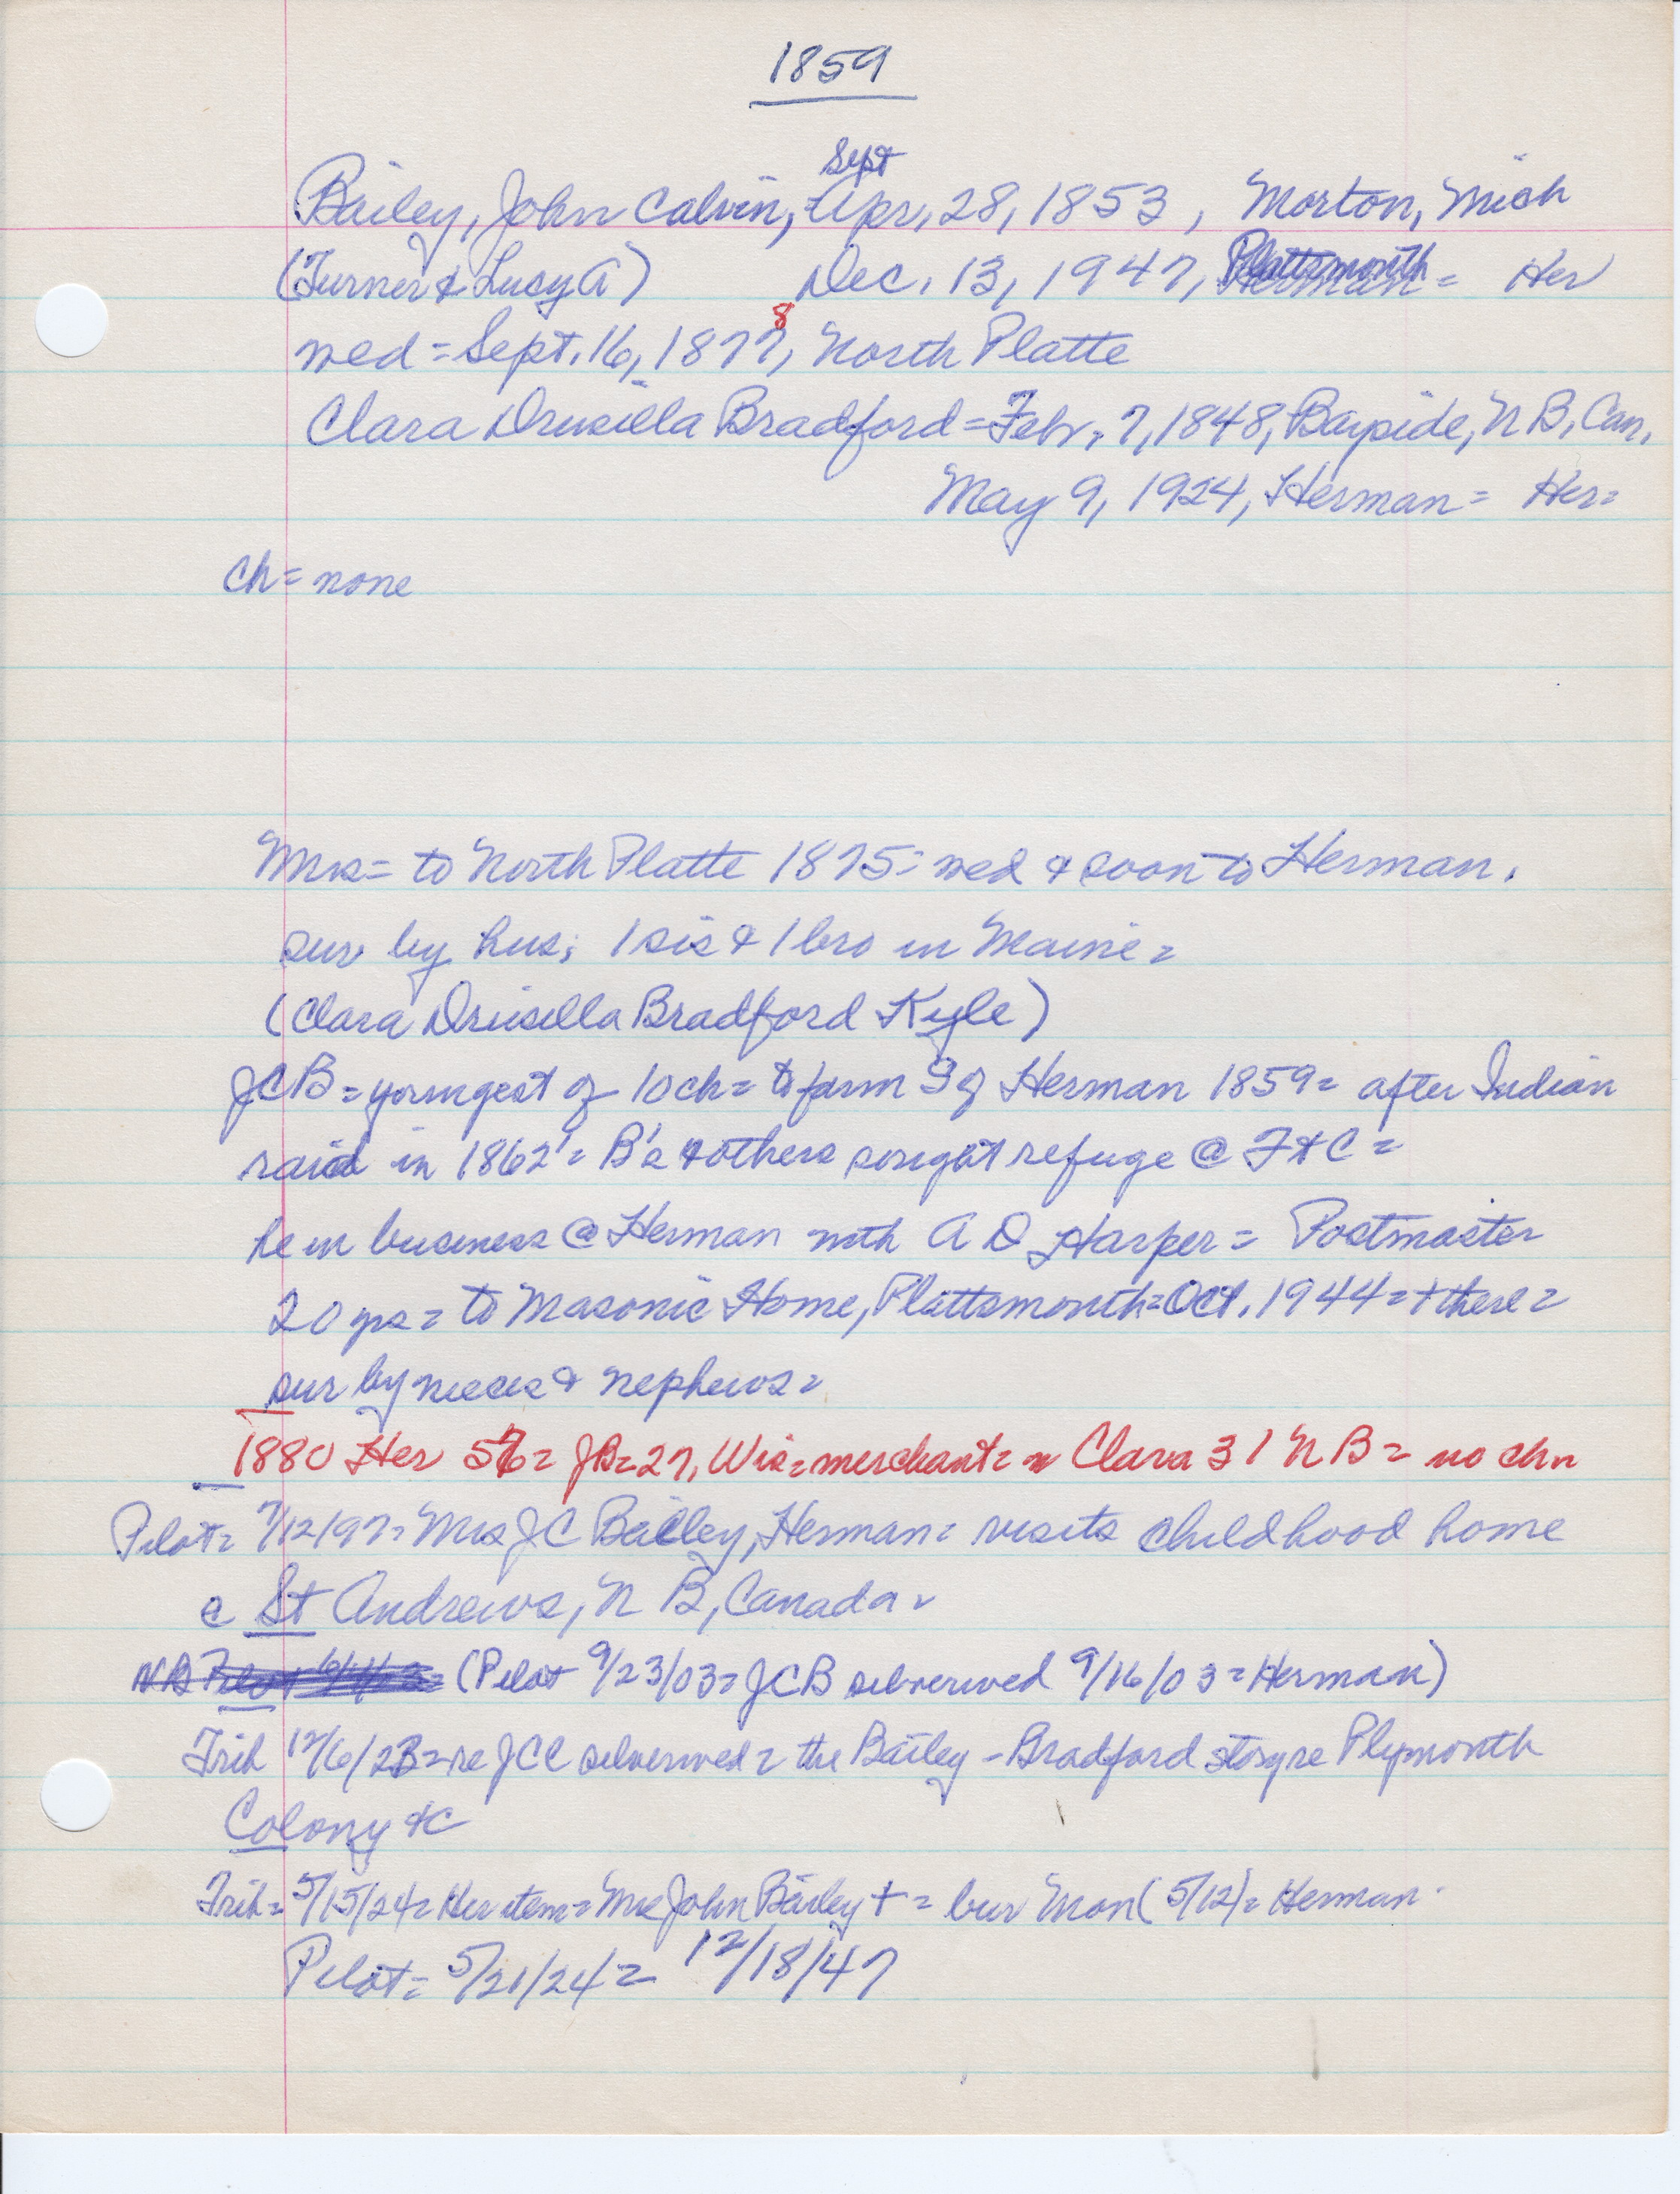 1859
Sept
Bailey, John Calvin, Apr, 28, 1853, Morton, Mich
(Turner & Lucy A) Dec. 13, 1947, Plattsmouth = Her
8
wed = Sept. 16, 1877, North Platte
Clara Drusilla Bradford = Febr. 7, 1848, Bayside, N B, Can.
May 9, 1924, Herman = Her =
Ch = none
Mrs = to North Platte 1875 = wed & soon to Herman.
sur by hus; 1 sis & 1 bro in Maine =
(Clara Drusilla Bradford Kyle)
JCB = youngest of 10 ch = to farm S of Herman 1859 = after Indian
raid in 1862 = B's & others sought refuge @ Ft C =
he in business @ Herman with A D Harper = Postmaster
20 yrs = to Masonic Home, Plattsmouth = Oct. 1944 = + there =
sur by nieces & nephews =
1880 Her = JB = 27, Wis = merchant = Clara 31 N B = no chn
Pilot = 7/12/97 = Mrs J C Bailey, Herman = visits childhood home
@ St Andrews, N B, Canada =
(Pilot 9/23/03 = JCB silverwed 9/16/03 = Herman)
Trib 12/6/23 = re JCC silverwed = the Bailey - Bradford story re Plymouth
Colony &c
Trib = 5/15/24 = Her item = Mrs John Bailey + = bur Mon (5/12) = Herman
Pilot = 5/21/24 = 12/18/47